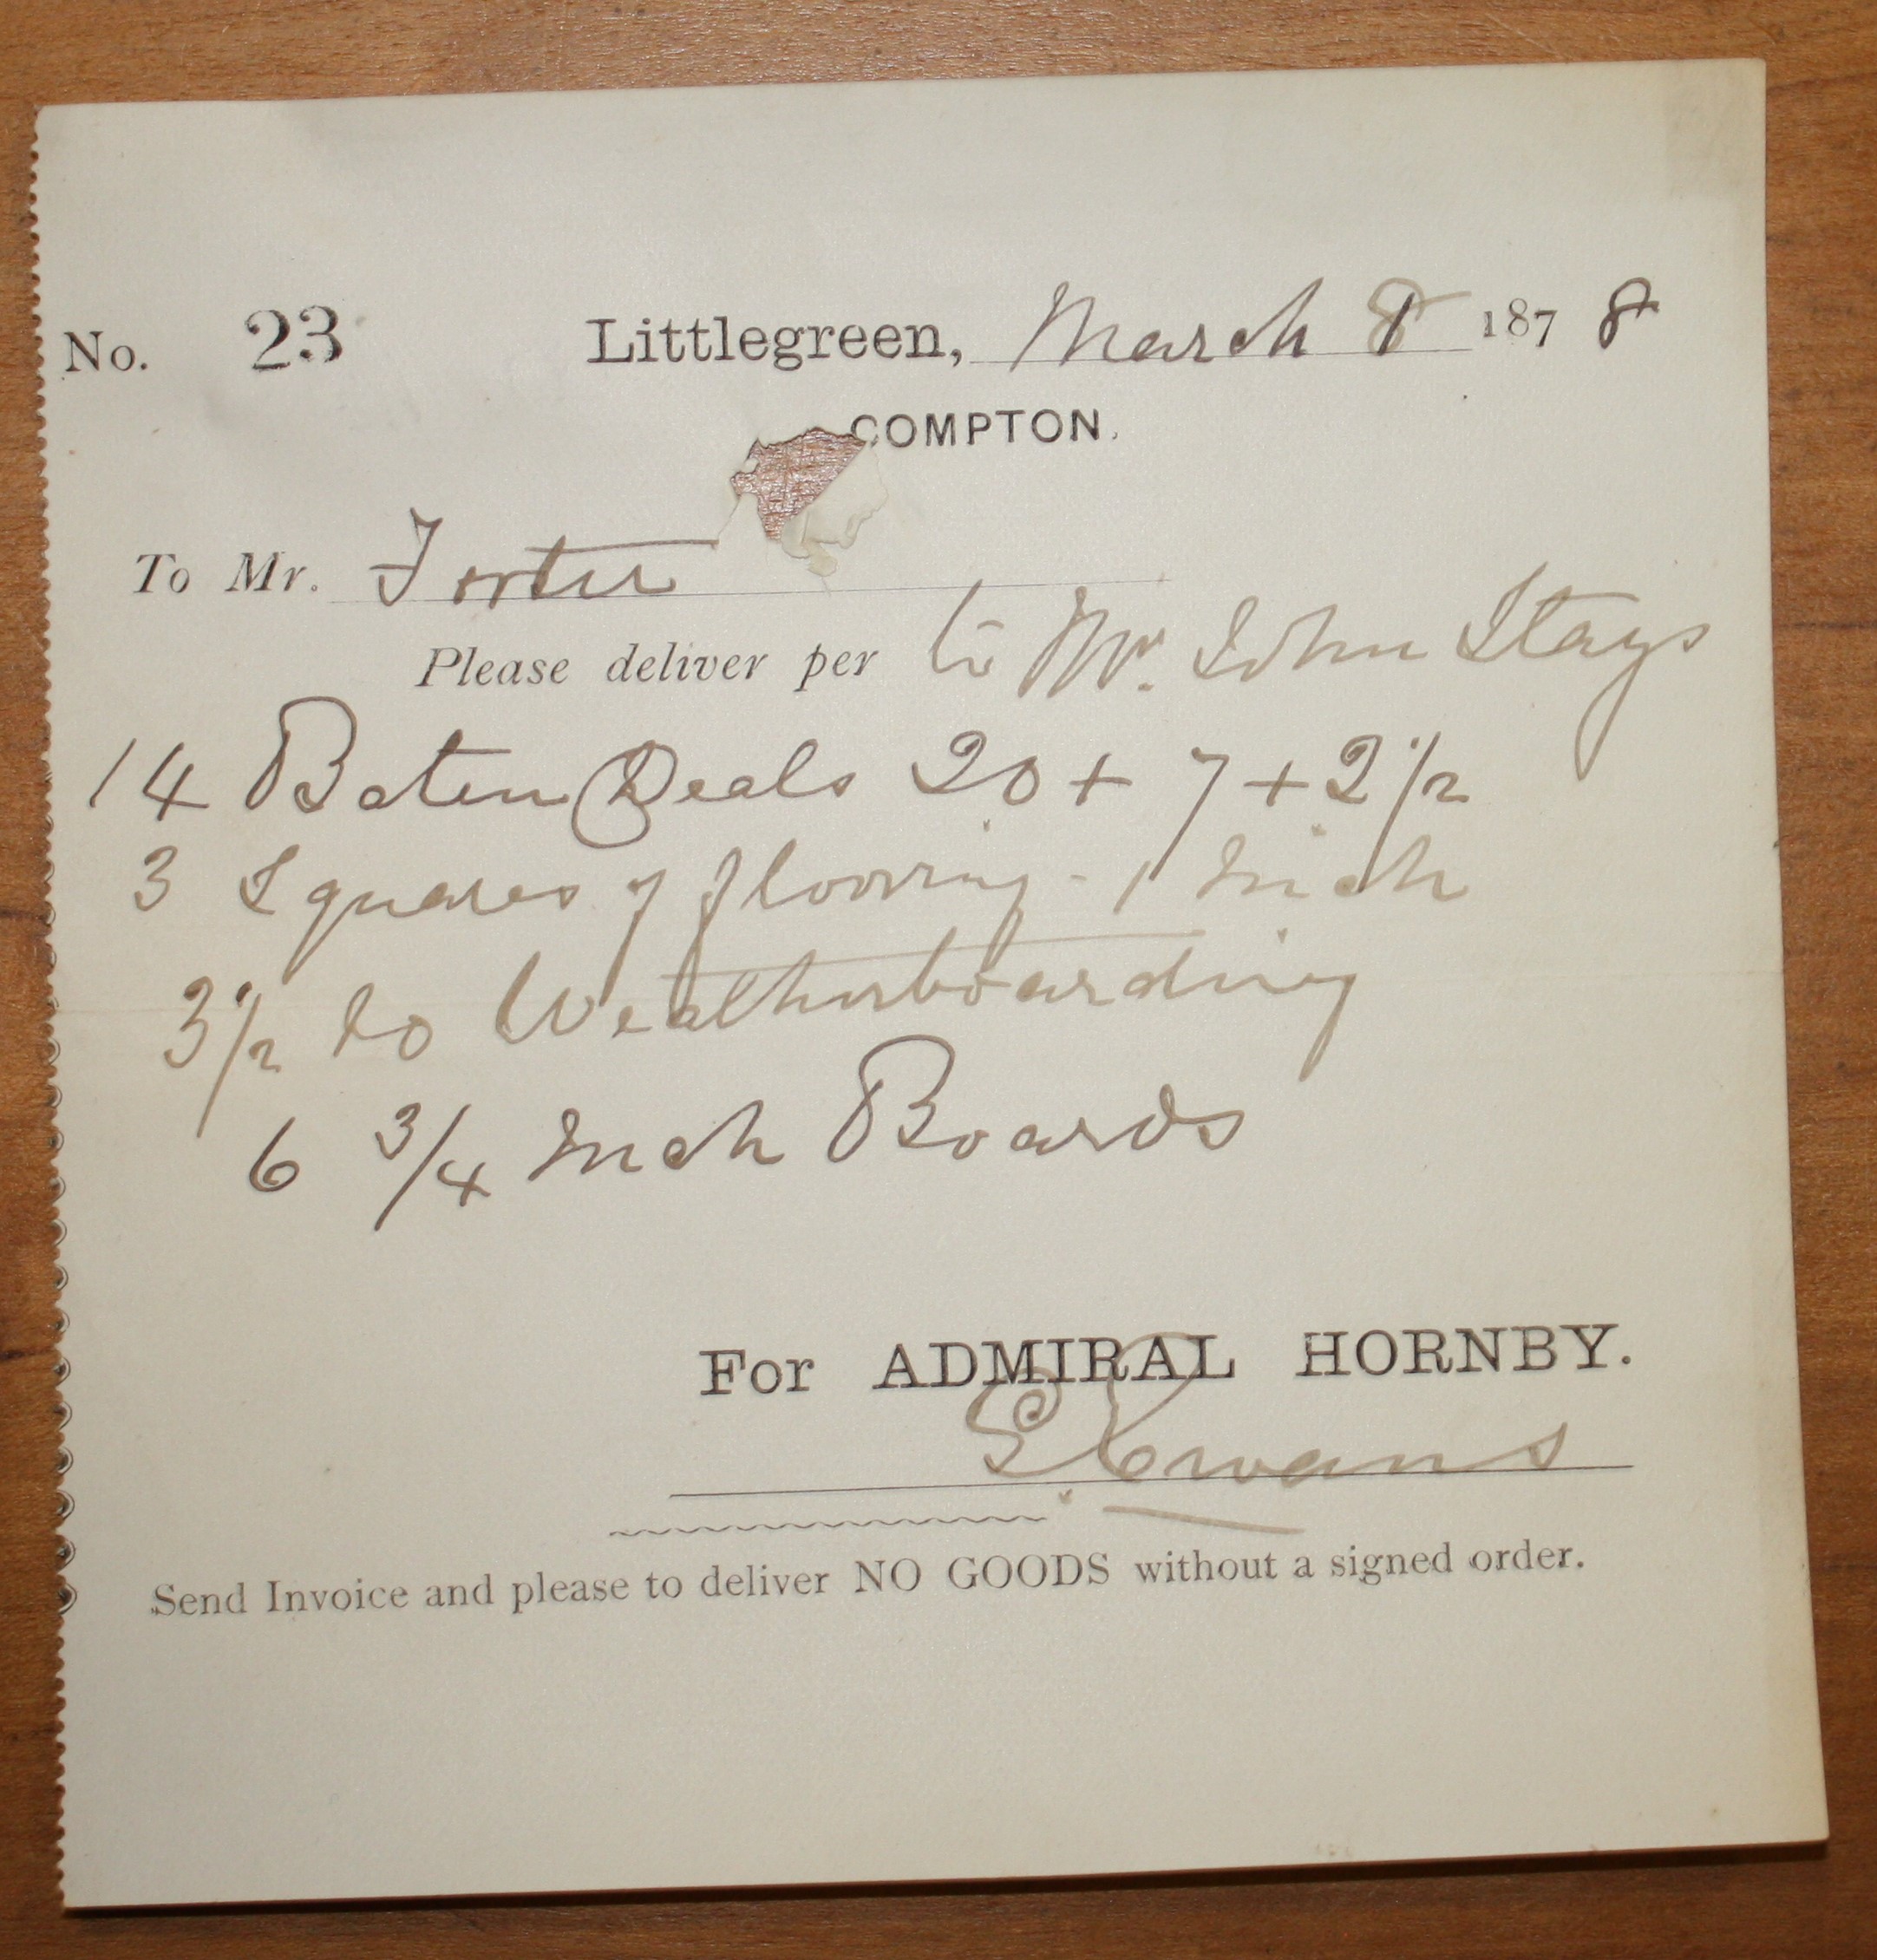 No. 23 Littlegreen, March 8 1878
COMPTON.
To Mr. Forster
Please deliver per to Mr. John Stays
14 Baten Deals 20 + 7 + 2 1/2
3 Squares of flooring - 1 Inch
3 1/2 do Weatherboarding
6 3/4 Inch Boards
For ADMIRAL HORNBY.
Evans
Send Invoice and please to deliver NO GOODS without a signed order.